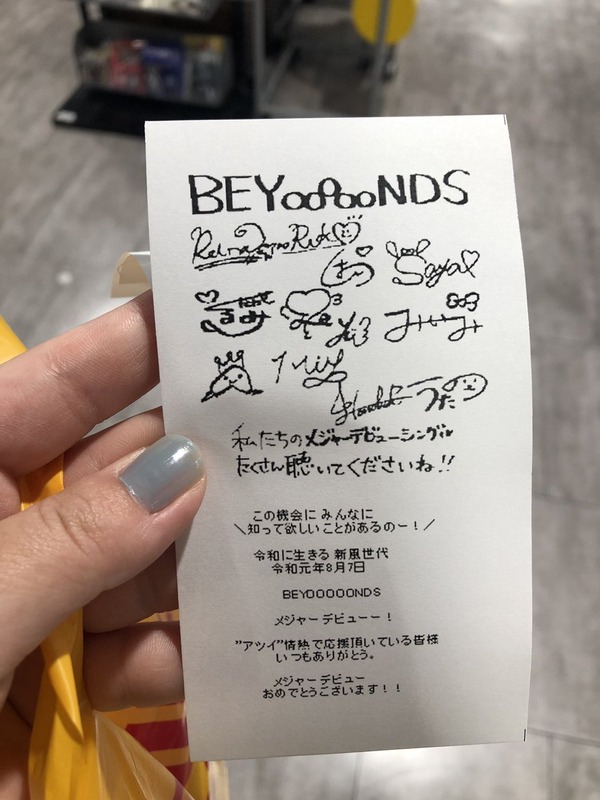 BEYOOOOONDS
Rika
Saya
るみ
みいみ
うた
私たちのメジャーデビューシングル
たくさん聴いてくださいね!!
この機会に みんなに
＼知って欲しいことがあるのー！／
令和に生きる 新風世代
令和元年8月7日
BEYOOOOONDS
メジャーデビューー！
"アツイ"情熱で応援頂いている皆様
いつもありがとう。
メジャーデビュー
おめでとうございます！！